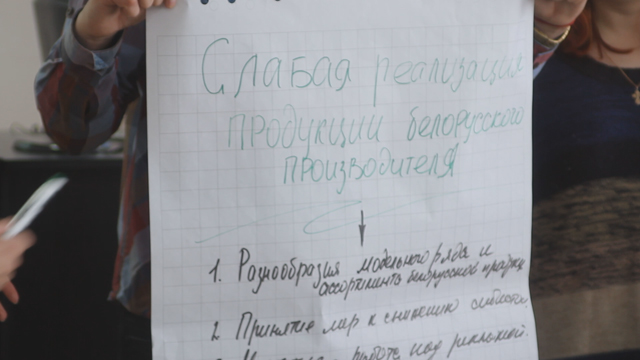 Слабая реализация
продукции белорусского
производителя
1. Разнообразия модельного ряда и
ассортимента белорусской
2. Принятие мер к снижению
работе над рекламой.